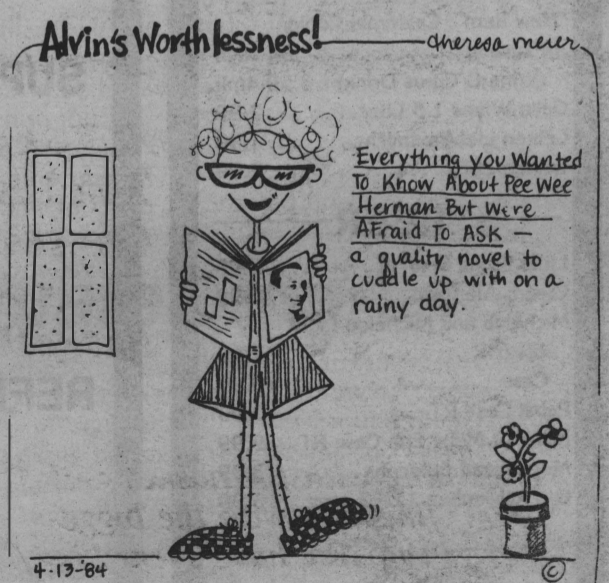 Alvin's Worthlessness!
theresa meier
Everything you Wanted
To Know About Pee Wee
Herman But Were
Afraid To ASK —
a quality novel to
cuddle up with on a
rainy day.
4-13-'84
©